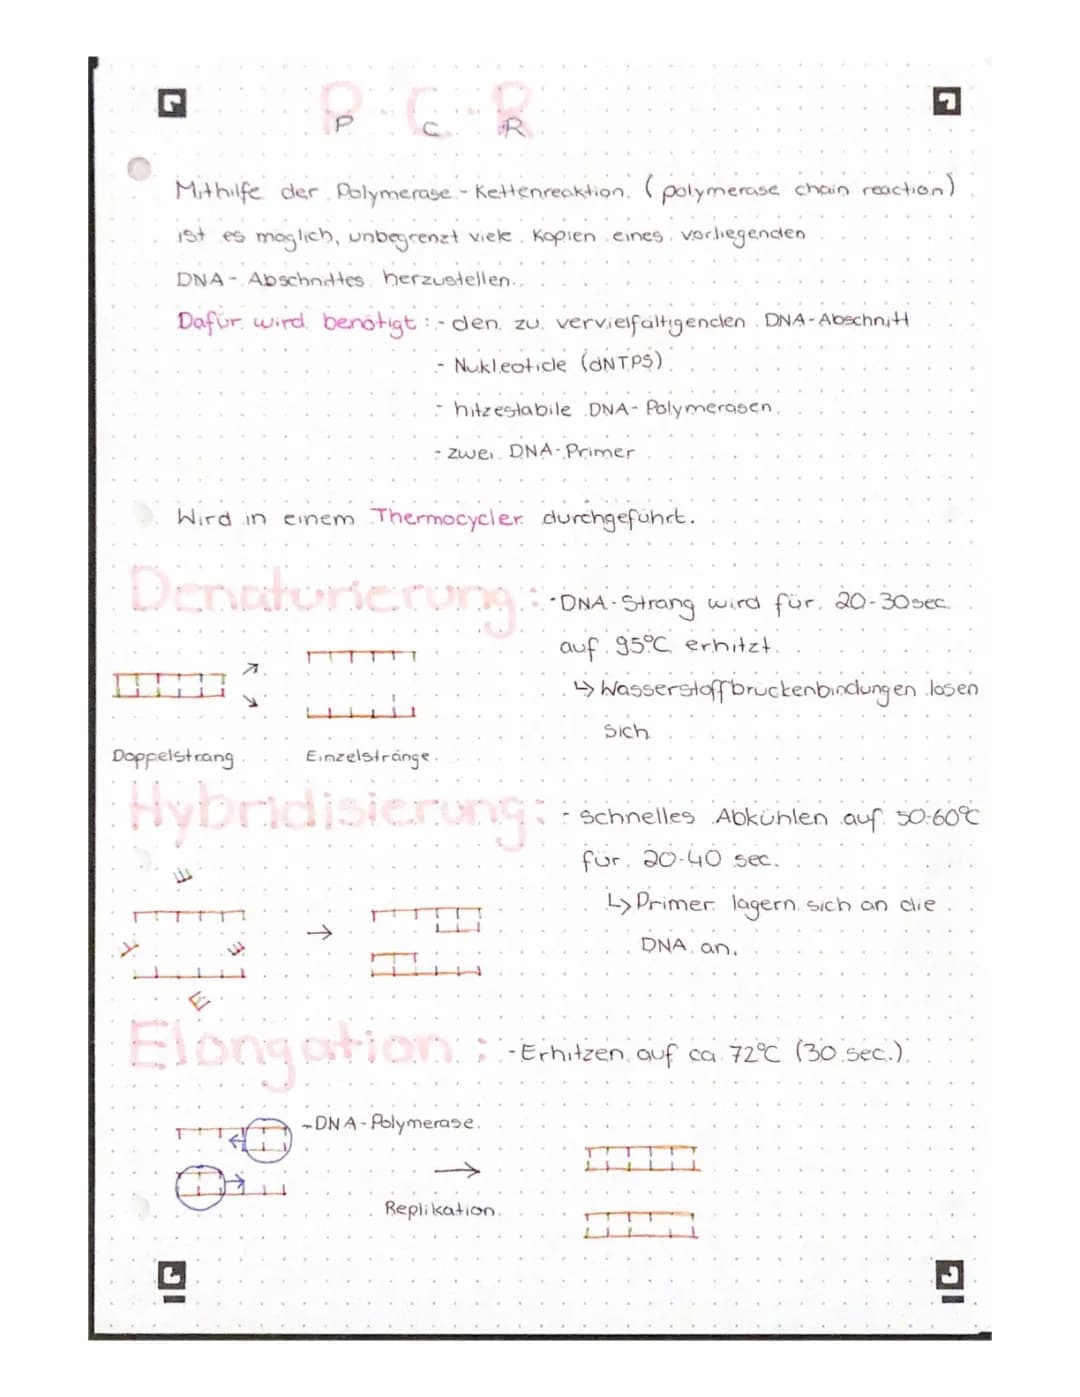 P C R
P C R
Mithilfe der Polymerase-Kettenreaktion (polymerase chain reaction)
ist es möglich, unbegrenzt viele Kopien eines vorliegenden
DNA-Abschnittes herzustellen.
Dafür wird benötigt: - den zu vervielfältigenden DNA-Abschnitt
- Nukleotide (dNTPS)
- hitzestabile DNA-Polymerasen
- zwei DNA-Primer
Wird in einem Thermocycler durchgeführt.
Denaturierung: - DNA-Strang wird für 20-30 sec.
auf 95°C erhitzt.
↳ Wasserstoffbrückenbindungen lösen
sich
Doppelstrang Einzelstränge
Hybridisierung: - schnelles Abkühlen auf 50-60°C
für 20-40 sec.
↳ Primer lagern sich an die
DNA an.
Elongation: - Erhitzen auf ca. 72°C (30 sec.)
-DNA-Polymerase
Replikation